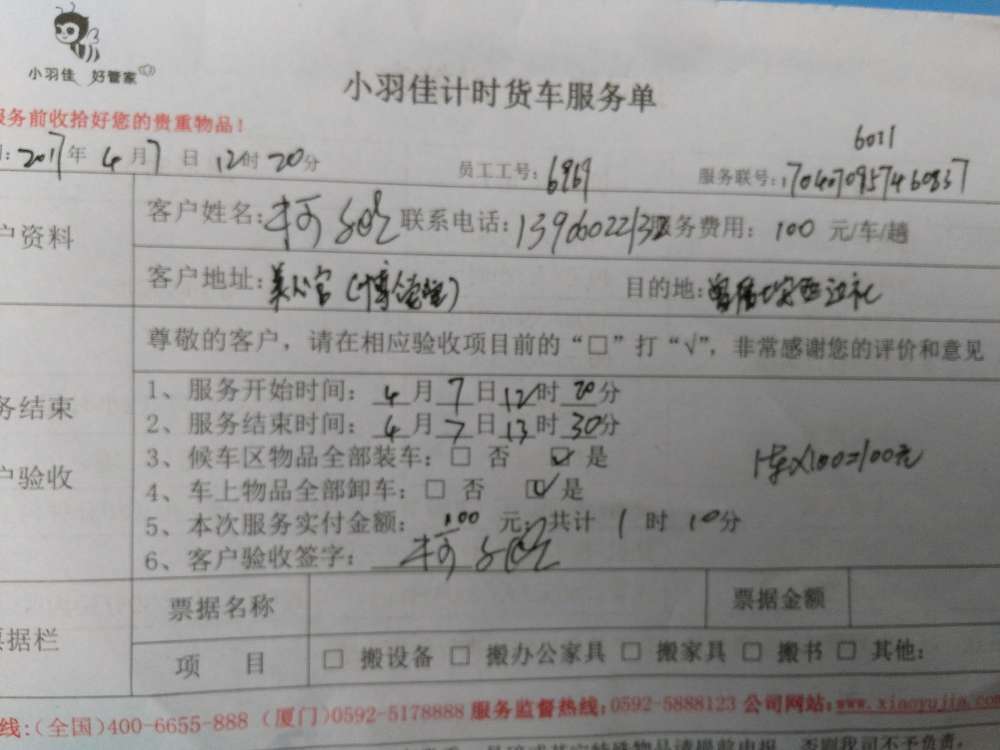 小羽佳 好管家
小羽佳计时货车服务单
服务前收拾好您的贵重物品！
6011
2017年 4月7日 12时20分 员工工号：6969 服务联号：
客户资料
客户姓名：柯 联系电话： 服务费用：100 元/车/趟
客户地址：美人宫 目的地：
尊敬的客户，请在相应验收项目前的“□”打“√”，非常感谢您的评价和意见
务结束
户验收
1、服务开始时间：4月7日12时20分
2、服务结束时间：4月7日13时30分
3、候车区物品全部装车：□ 否 ☑ 是
1车×100=100元
4、车上物品全部卸车：□ 否 ☑ 是
5、本次服务实付金额：100 元；共计 1 时 10分
6、客户验收签字：柯
票据栏
票据名称 票据金额
项 目 □ 搬设备 □ 搬办公家具 □ 搬家具 □ 搬书 □ 其他：
线：(全国)400-6655-888 (厦门)0592-5178888 服务监督热线：0592-5888123 公司网站：www.xiaoyujia.com